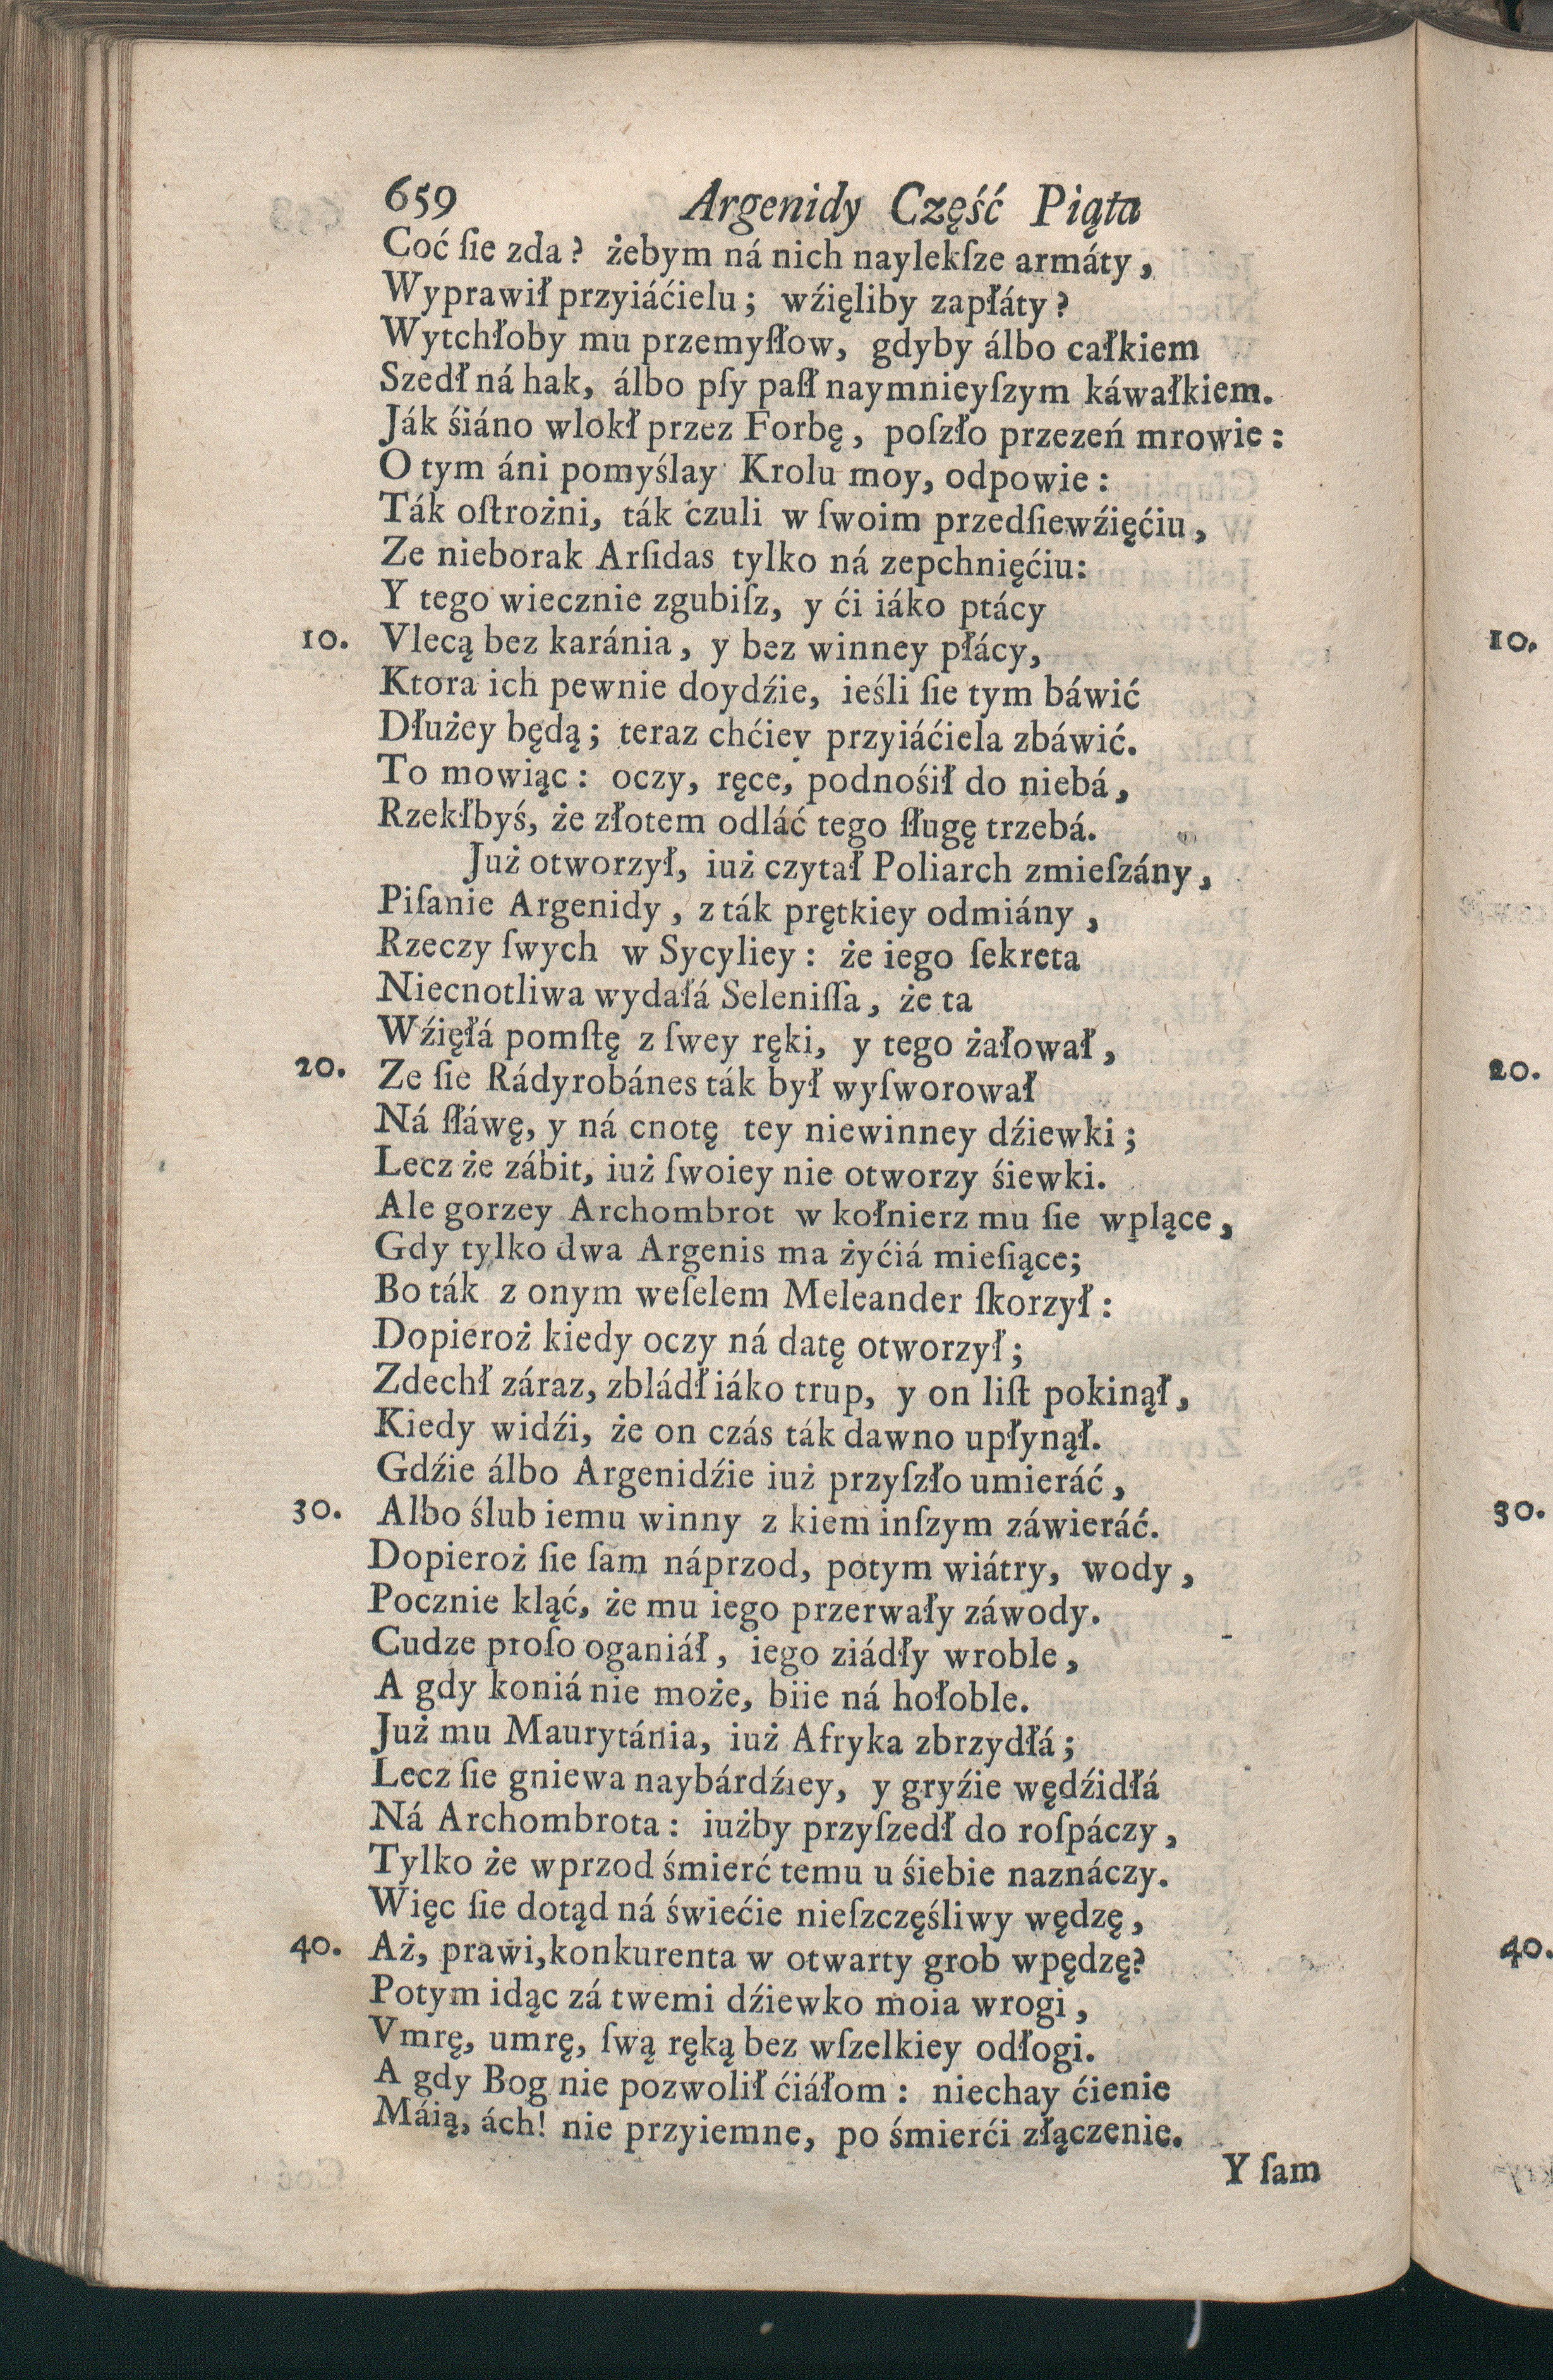 659 Argenidy Część Piąta
Coć ſie zda? żebym ná nich naylekſze armáty,
Wyprawił przyiáćielu; wźięliby zapłáty?
Wytchłoby mu przemyſłow, gdyby álbo całkiem
Szedł ná hak, álbo pſy paſł naymnieyſzym káwałkiem.
Ják śiáno wlokł przez Forbę, poſzło przezeń mrowie:
O tym áni pomyślay Krolu moy, odpowie:
Ták oſtrożni, ták czuli w ſwoim przedſiewźięćiu,
Ze nieborak Arſidas tylko ná zepchnięćiu:
Y tego wiecznie zgubiſz, y ći iáko ptácy
10. Vlecą bez karánia, y bez winney płácy,
Ktora ich pewnie doydźie, ieśli ſie tym báwić
Dłużey będą; teraz chćiey przyiáćiela zbáwić.
To mowiąc: oczy, ręce, podnośił do niebá,
Rzekłbyś, że złotem odláć tego ſługę trzebá.
Już otworzył, iuż czytał Poliarch zmieſzány,
Piſanie Argenidy, z ták prętkiey odmiány,
Rzeczy ſwych w Sycyliey: że iego ſekreta
Niecnotliwa wydałá Seleniſſa, że ta
Wźięłá pomſtę z ſwey ręki, y tego żałował,
20. Ze ſie Rádyrobánes ták był wyſworował
Ná ſłáwę, y ná cnotę tey niewinney dźiewki;
Lecz że zábit, iuż ſwoiey nie otworzy śiewki.
Ale gorzey Archombrot w kołnierz mu ſie wplące,
Gdy tylko dwa Argenis ma żyćiá mieſiące;
Bo ták z onym weſelem Meleander ſkorzył:
Dopieroż kiedy oczy ná datę otworzył;
Zdechł záraz, zbládł iáko trup, y on liſt pokinął,
Kiedy widźi, że on czás ták dawno upłynął.
Gdźie álbo Argenidźie iuż przyſzło umieráć,
30. Albo ślub iemu winny z kiem inſzym záwieráć.
Dopieroż ſie ſam náprzod, potym wiátry, wody,
Pocznie kląć, że mu iego przerwały záwody.
Cudze proſo oganiáł, iego ziádły wroble,
A gdy koniá nie może, biie ná hołoble.
Już mu Maurytánia, iuż Afryka zbrzydłá;
Lecz ſie gniewa naybárdźiey, y gryźie wędźidłá
Ná Archombrota: iużby przyſzedł do roſpáczy,
Tylko że wprzod śmierć temu u śiebie naznáczy.
Więc ſie dotąd ná świećie nieſzczęśliwy wędzę,
40. Aż, prawi, konkurenta w otwarty grob wpędzę?
Potym idąc zá twemi dźiewko moia wrogi,
Vmrę, umrę, ſwą ręką bez wſzelkiey odłogi.
A gdy Bog nie pozwolił ćiáłom: niechay ćienie
Máią, ách! nie przyiemne, po śmierći złączenie.
Y ſam
10.
20.
30.
40.